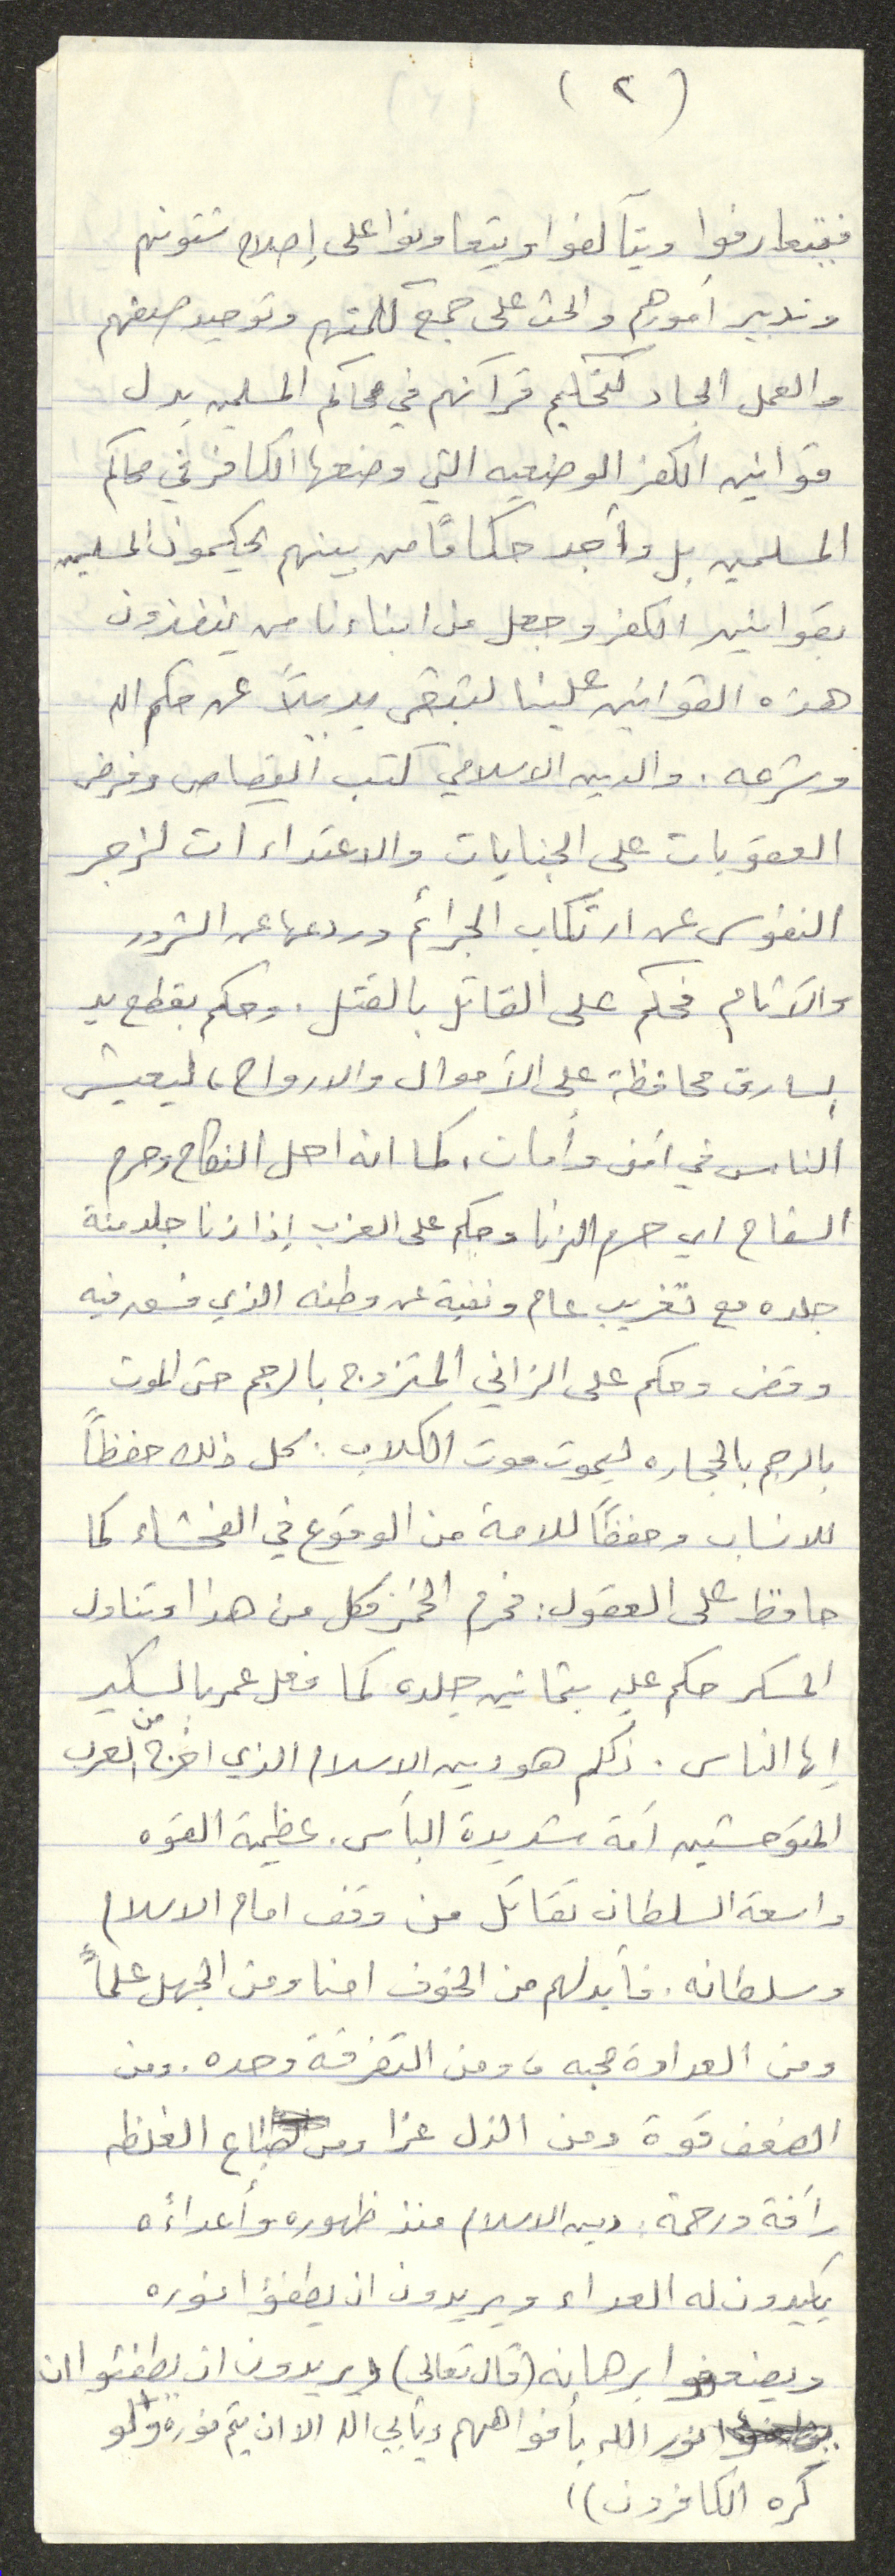 ( ٢ )
فيتعارفوا ويتآلفوا ويتعاونوا على إصلاح شئونهم
وتدبير أمورهم والحث على جمع كلمتهم وتوحيد صفهم
والعمل الجاد لتحكيم قرآنهم في محاكم المسلمين بدل
قوانين الكفر الوضعيه التي وضعها الكافر في محاكم
المسلمين بل وأجد حكامًا من بينهم يحكمون المسلمين
بقوانين الكفر وجعل من ابناءنا من ينفذون
هذه القوانين علينا لتبقى بديلاً عن حكم الله
وشرعه . والدين الاسلامي كتب القصاص وفرض
العقوبات على الجنايات والاعتداءات لزجر
النفوس عن ارتكاب الجرائم وردعها عن الشرور
والآثام فحكم على القاتل بالقتل . وحكم بقطع يد
السارق محافظة على الأموال والارواح ، ليعيش
الناس في أمن وأمان ، كما انه احل النكاح وحرم
السفاح اي حرم الزنا وحكم على العزب إذا زنا جلد مئة
جلده مع تغريب عام ونفية عن وطنه الذي فسد فيه
وقضى وحكم على الزاني المتزوج بالرجم حتى الموت
بالرجم بالحجاره ليموت موت الكلاب : كل ذلك حفظاً
للانساب وحفظاً للامة من الوقوع في الفحشاء كما
حافظ على العقول : فحرم الخمر فكل من هذا وتناول
المسكر حكم عليه بثمانين جلده كما فعل عمر بالسكير
ايها الناس . ذلكم هو دين الاسلام الذي اخرج من العرب
المتوحشين أمة شديدة البأس . عظيمة القوه
واسعة السلطان تقاتل من وقف امام الاسلام
وسلطانه . فأبدلهم من الخوف امنا ومن الجهل علماً
ومن العداوة محبه ، ومن التفرقة وحده . ومن
الضعف قوة ومن الذل عزا ومن طباع الغلظه
رأفة ورحمة : دين الاسلام منذ ظهوره وأعداؤه
يكيدون له العداء ويريدون ان يطفؤا نوره
ويضعفوا برهانه ( قال تعالى ) ( يريدون ان يطفئوا ان
نور الله بأفواههم ويأبى الله الا ان يتم نوره ولو
كره الكافرون ) )